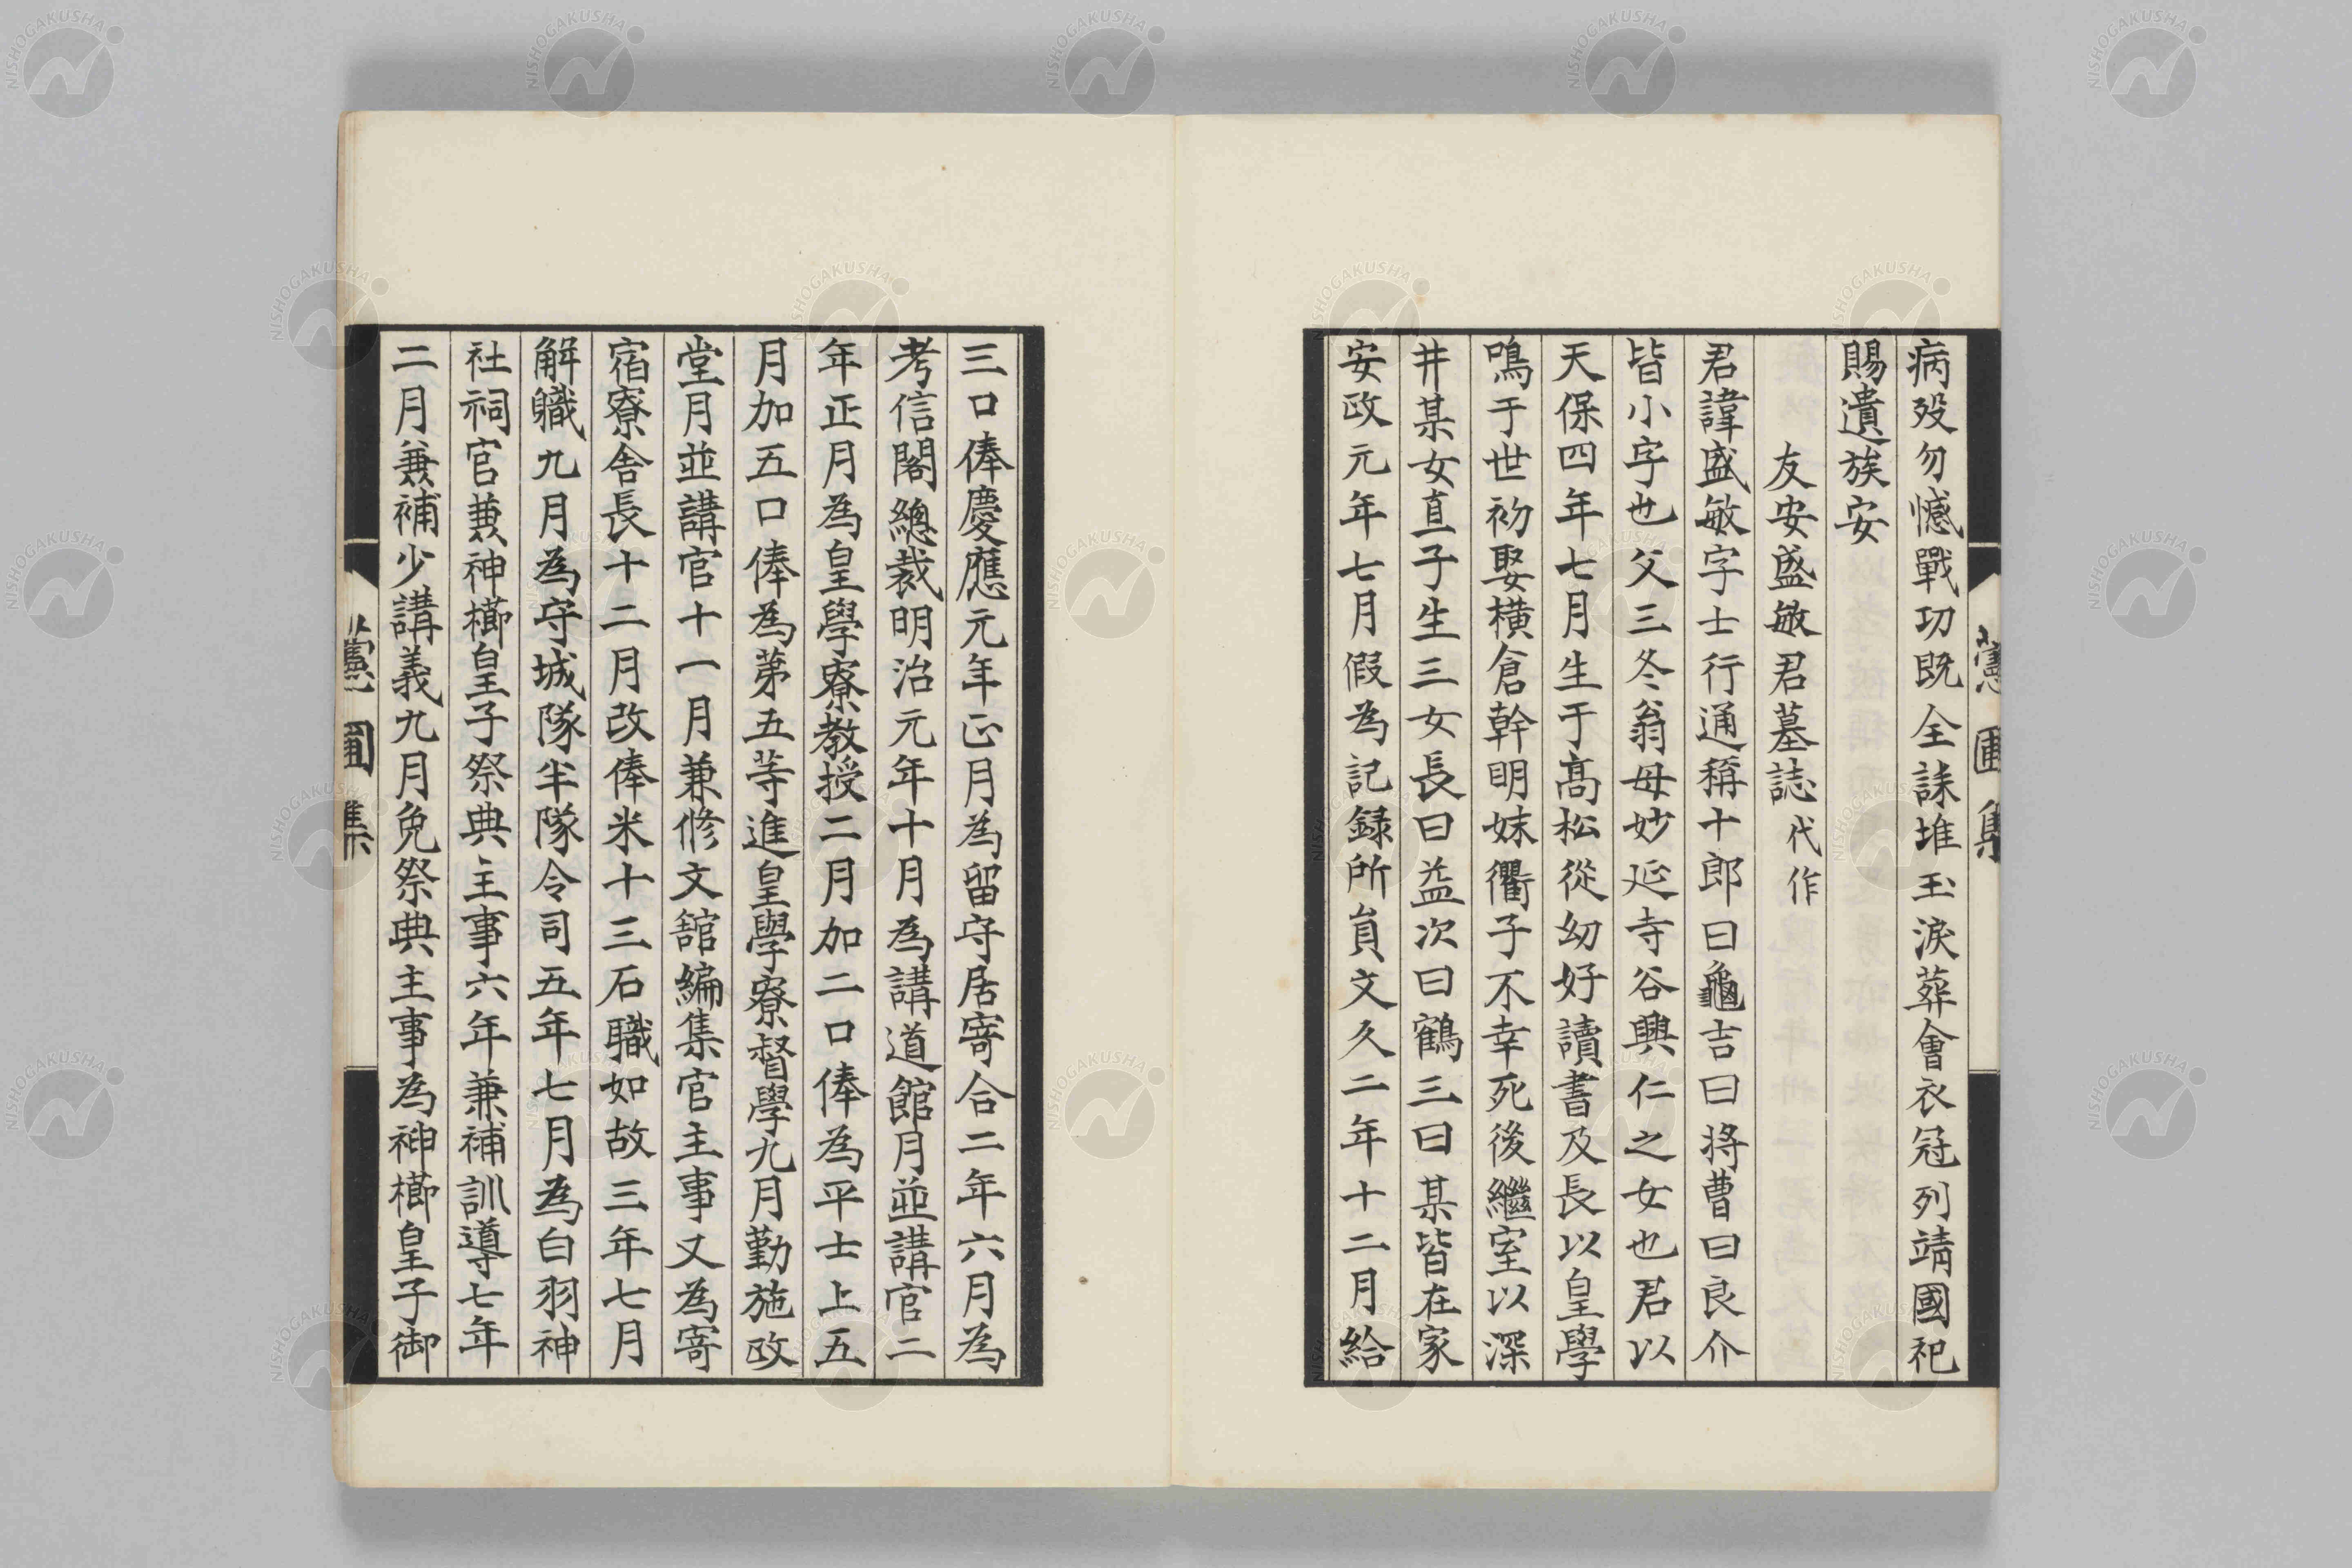 病歿勿憾戰功既全誄堆玉淚葬會衣冠列靖國祀
賜遺族安
友安盛敏君墓誌代作
君諱盛敏字士行通稱十郎曰龜吉曰將曹曰良介
皆小字也父三冬翁母妙延寺谷興仁之女也君以
天保四年七月生于髙松從幼好讀書及長以皇學
鳴于世初娶橫倉幹明妹衢子不幸死後繼室以深
井某女直子生三女長曰益次曰鶴三曰某皆在家
安政元年七月假為記録所貟文久二年十二月給
三口俸慶應元年正月為留守居寄合二年六月為
考信閣總裁明治元年十月為講道館月並講官二
年正月為皇學寮教授二月加二口俸為平士上五
月加五口俸為苐五等進皇學寮督學九月勤施政
堂月並講官十一月兼修文舘編集官主事又為寄
宿寮舎長十二月改俸米十三石職如故三年七月
解職九月為守城隊半隊令司五年七月為白羽神
社祠官兼神櫛皇子祭典主事六年兼補訓導七年
二月兼補少講義九月免祭典主事為神櫛皇子御
圃集